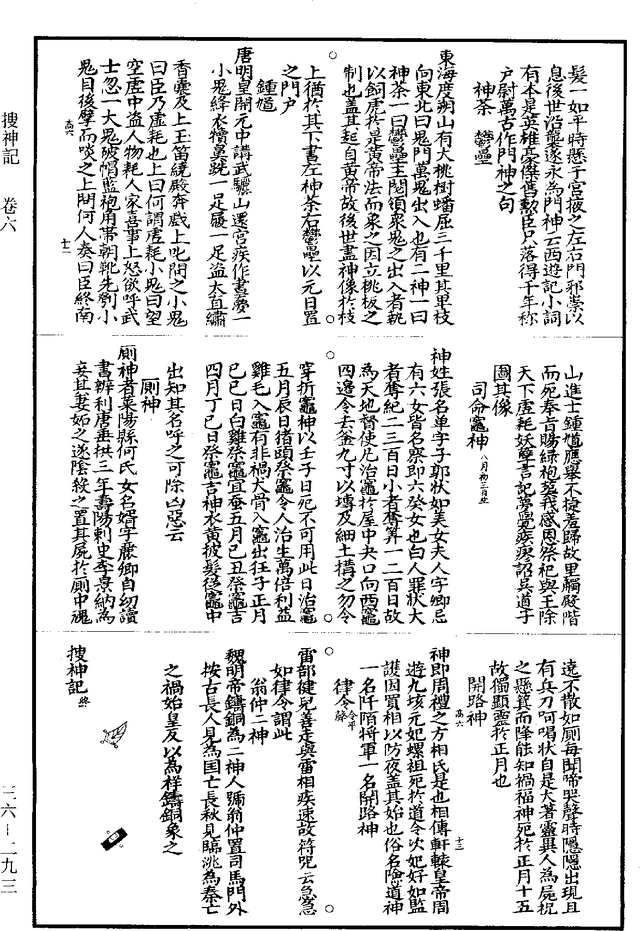 髮一如平時懸于宮掖之左右門邪祟以
息後世沿襲遂永為門神云西遊記小詞
有本是英雄豪傑舊勳臣只落得千年称
戶尉萬古作門神之句
神荼 鬱壘
東海度朔山有大桃樹蟠屈三千里其卑枝
向東北曰鬼門萬鬼出入也有二神一曰
神荼一曰鬱壘主閱領衆鬼之出入者執
以飼虎於是黃帝法而象之因立桃板之
制也盖其起自黃帝故後世畫神像於板
上猶於其下書左神荼右鬱壘以元日置
之門戶
鍾馗
唐明皇開元中講武驪山還宮疾作晝夢一
小鬼絳衣犢鼻跣一足履一足盜太真繡
香囊及上玉笛繞殿奔戲上叱問之小鬼
曰臣乃虛耗也上曰何謂虛耗小鬼曰望
空虛中盜人物耗人家喜事上怒欲呼武
士忽一大鬼破帽藍袍角帶朝靴先刳小
鬼目後擘而啖之上問何人奏曰臣終南
山進士鍾馗應舉不捷羞歸故里觸殿階
而死奉旨賜綠袍葬我感恩祭祀與王除
天下虛耗妖孽言訖夢覺疾瘳詔吳道子
圖其像
司命竈神 八月初三日生
神姓張名单字子郭狀如美女夫人字卿忌
有六女皆名察即六癸女也白人罪狀大
者奪紀二三百日小者奪算一二百日故
為天地督使凡治竈於屋中央口向西竈
四邊令去釜九寸以塼及細土搆之勿令
穿折竈神以壬子日死不可用此日治竈
五月辰日猪頭祭竈令人治生萬倍利益
雞毛入竈有非禍犬骨入竈出狂子正月
巳巳日白雞祭竈宜蚕五月巳丑祭竈吉
四月丁巳日祭竈吉神衣黃披髮從竈中
出知其名呼之可除凶惡云
厠神
厠神者萊陽縣何氏女名媚字麗卿自幼讀
書辨利唐垂拱三年壽陽刺史李景納為
妾其妻妒之遂陰殺之置其屍於厠中魂
遶不散如厠每聞啼哭聲時隱隱出現且
有兵刀呵喝狀自是大著靈異人為屍祝
之懸箕而降能知禍福神死於正月十五
故獨顯靈於正月也
開路神
神即周禮之方相氏是也相傳軒轅皇帝周
遊九垓元妃螺祖死於道令次妃好如監
護因買相以防夜盖其始也俗名險道神
一名阡陌將軍一名開路神
律令 令平聲
雷部健兒善走與雷相疾速故符咒云急急
如律令謂此
翁仲二神
魏明帝鑄銅為二神人號翁仲置司馬門外
按古長人見為国亡長秋見臨洮為秦亡
之禍始皇反以為祥鑄銅象之
搜神記 終
搜神記 卷六
高六 十二
高六 十三
三六—二九三